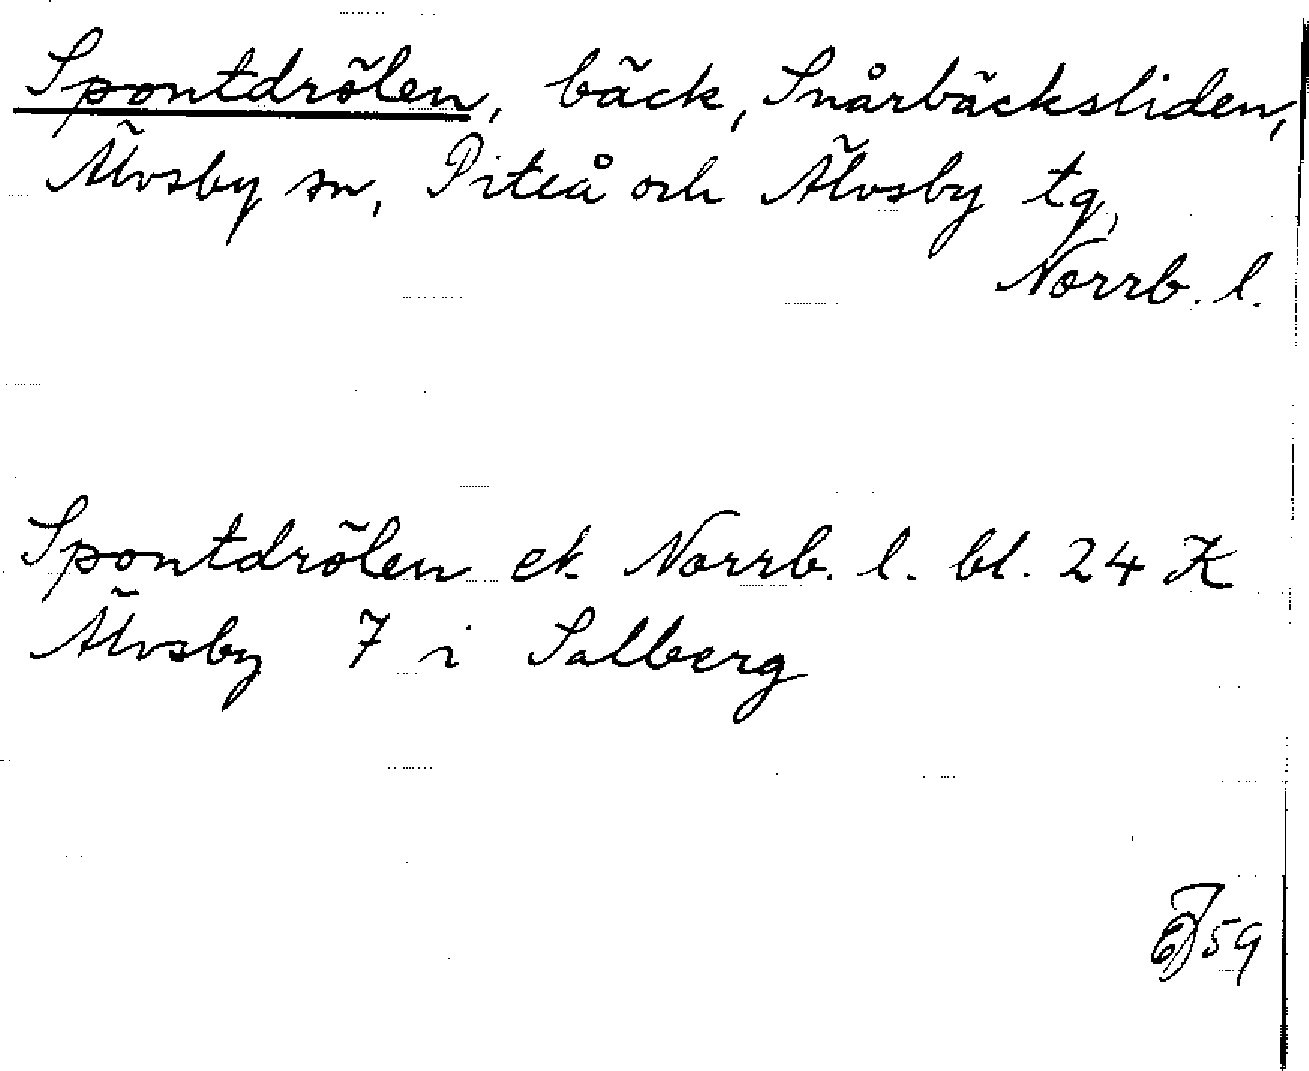 Spontdrölen, bäck, Snårbäcksliden,
Älvsby sn, Piteå och Älvsby tg,
Norrb. l.
Spontdrölen ek. Norrb. l. bl. 24 K
Älvsby 7 i Salberg
59